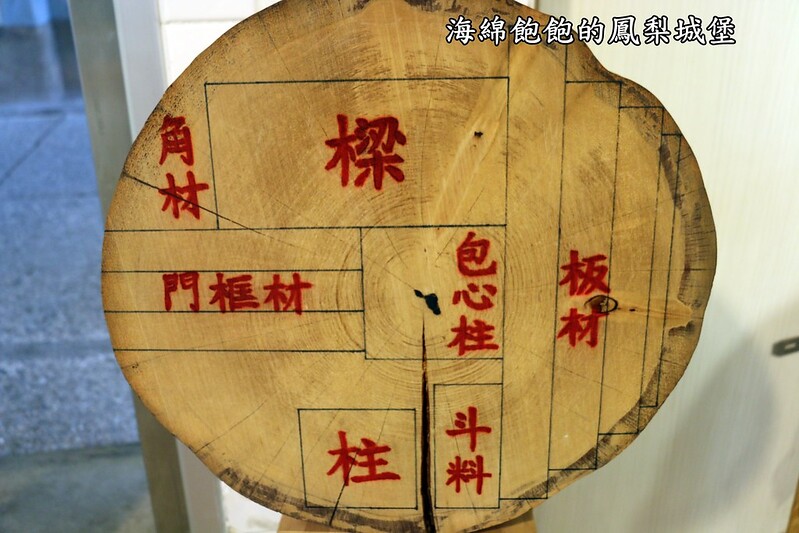 海綿飽飽的鳳梨城堡
角材
樑
門框材
包心柱
板材
柱
斗料